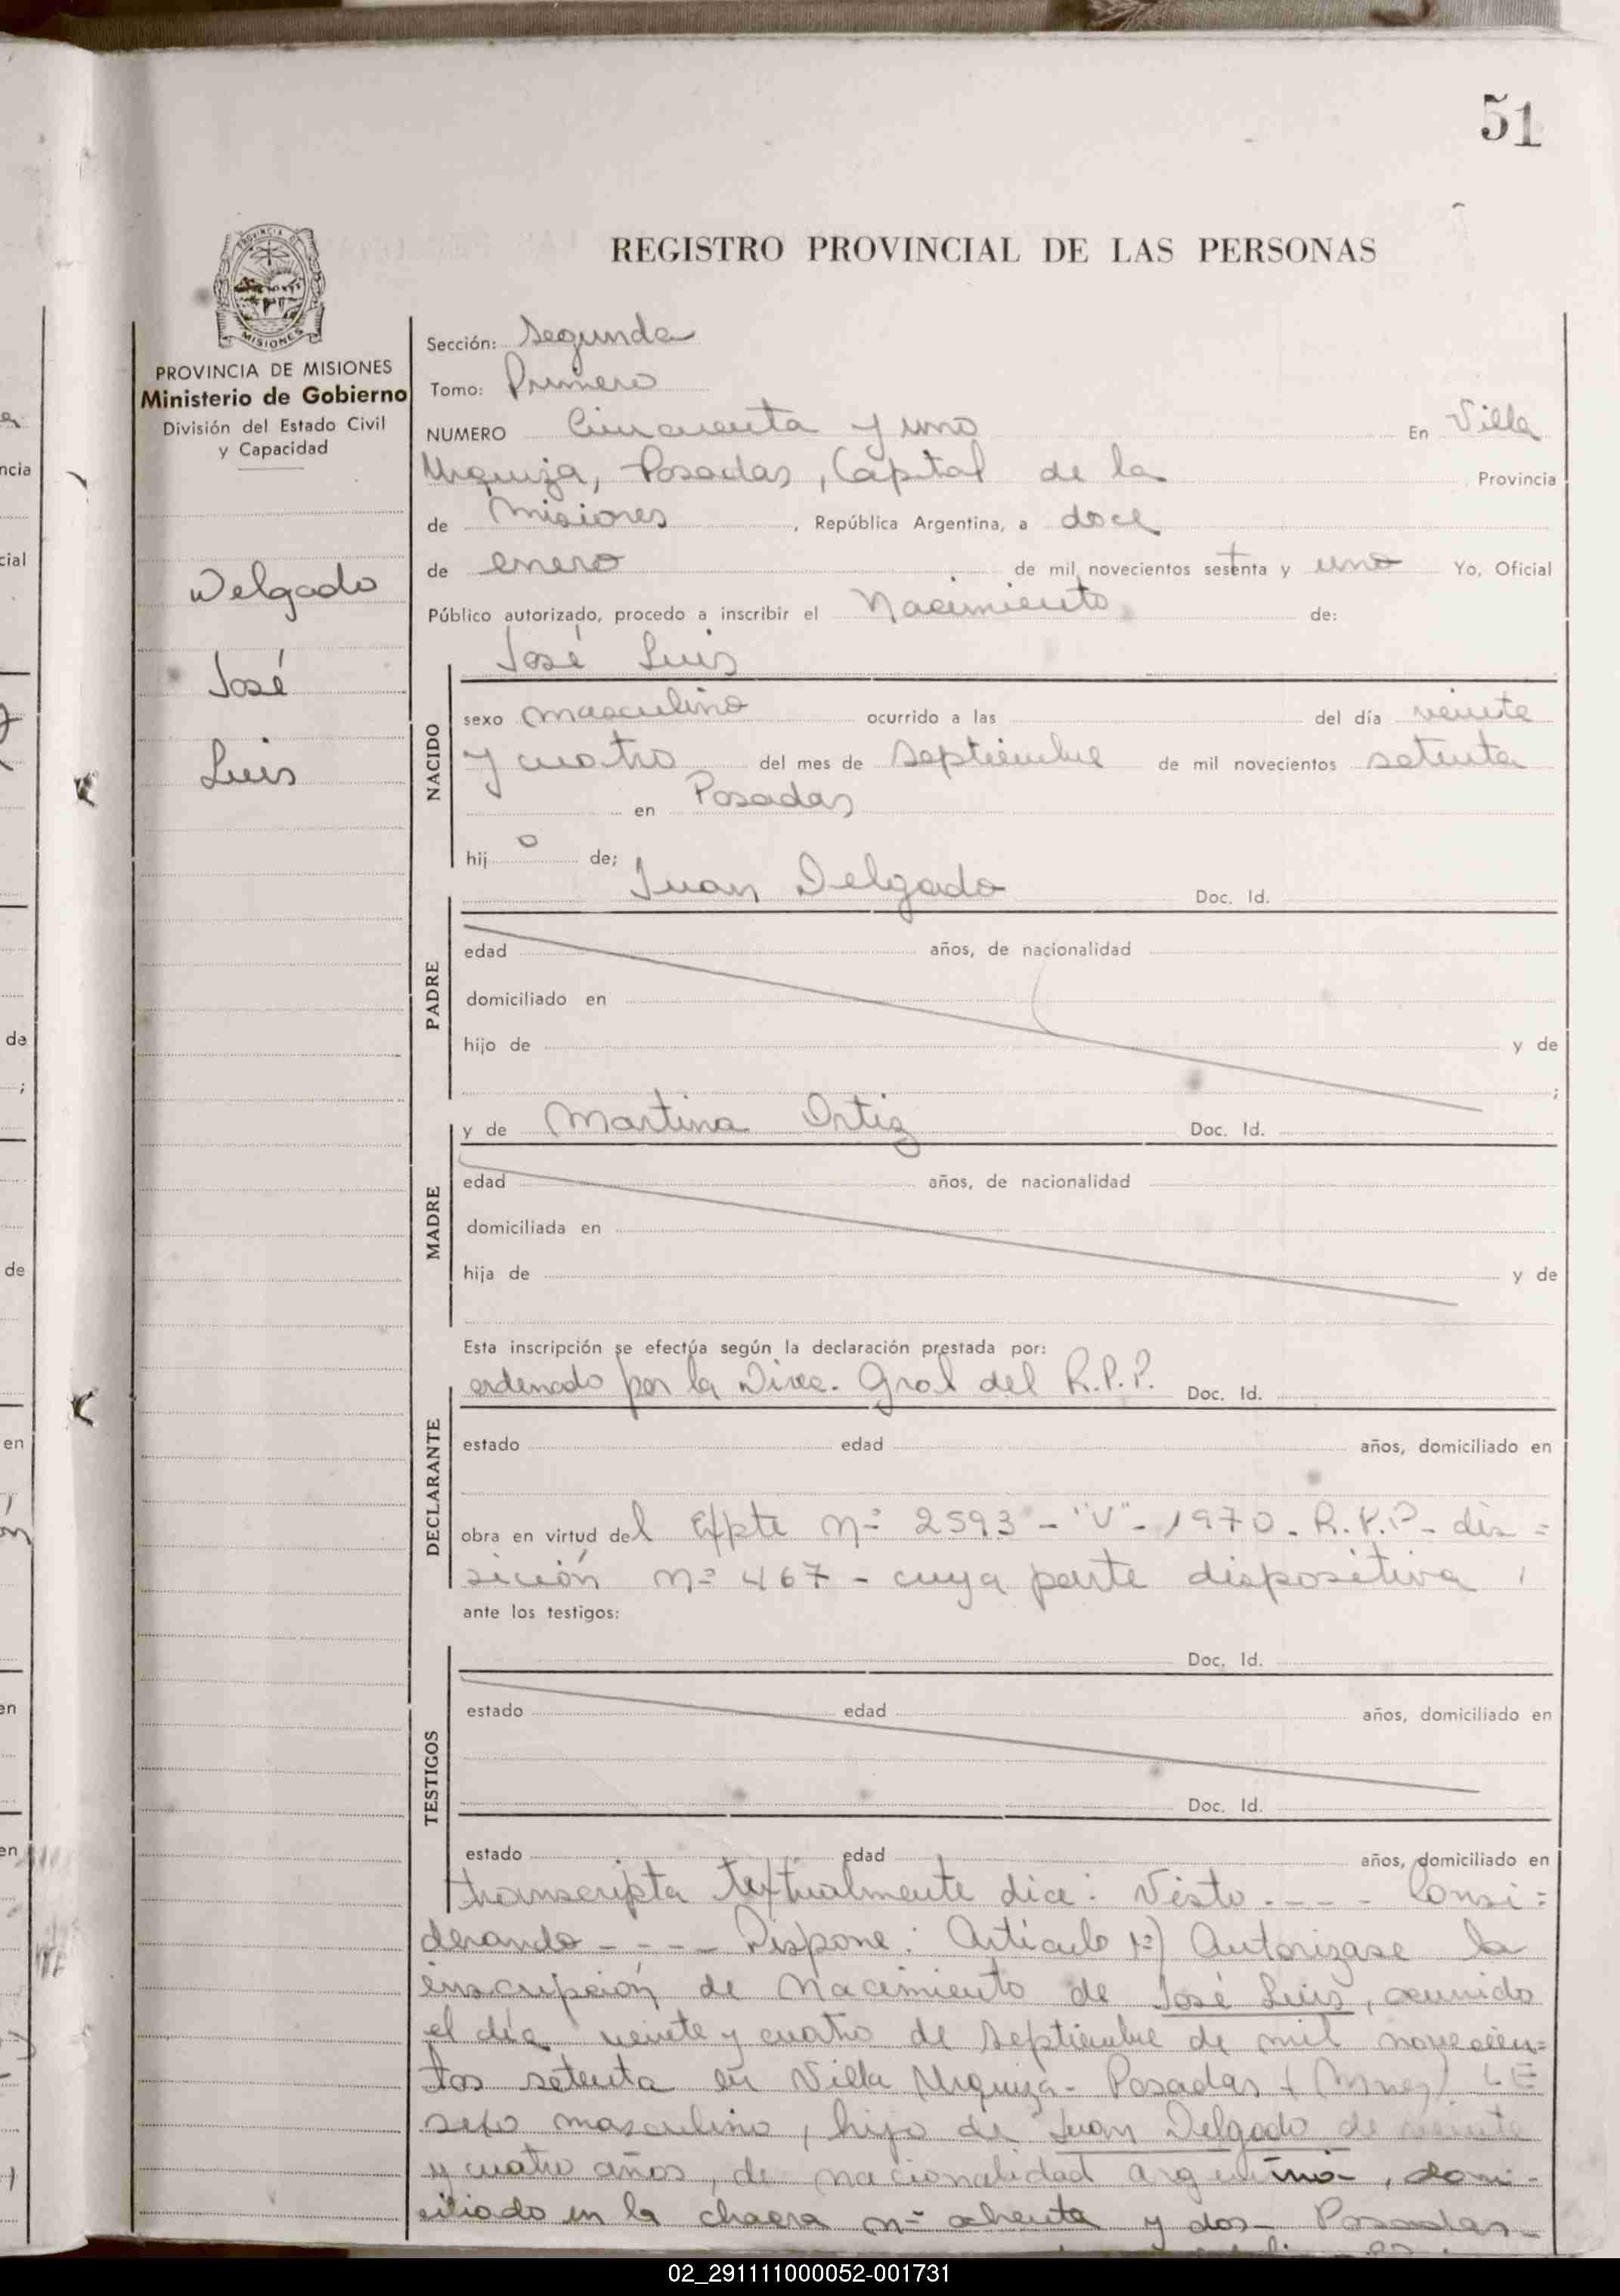 51
REGISTRO PROVINCIAL DE LAS PERSONAS
PROVINCIA DE
MISIONES
PROVINCIA DE MISIONES
Ministerio de Gobierno
División del Estado Civil
y Capacidad
Delgado
José
Luis
Sección: Segunda
Tomo: Primero
NUMERO Cincuenta y uno En Villa
Urquiza, Posadas, Capital de la Provincia
de Misiones, República Argentina, a doce
de enero de mil novecientos setenta y uno Yo, Oficial
Público autorizado, procedo a inscribir el Nacimiento de:
José Luis
NACIDO
sexo masculino ocurrido a las del día veinte
y cuatro del mes de septiembre de mil novecientos setenta
en Posadas
hijo de;
Juan Delgado Doc. Id.
PADRE
edad años, de nacionalidad
domiciliado en
hijo de y de
;
y de Martina Ortiz Doc. Id.
MADRE
edad años, de nacionalidad
domiciliada en
hija de y de
Esta inscripción se efectúa según la declaración prestada por:
ordenado por la Direc. Gral del R.P.P. Doc. Id.
DECLARANTE
estado edad años, domiciliado en
obra en virtud del Expte nº 2593 - "V" - 1970. R.P.P. dis=
sición nº 467 - cuya parte dispositiva
ante los testigos:
Doc. Id.
TESTIGOS
estado edad años, domiciliado en
Doc. Id.
estado edad años, domiciliado en
transcripta textualmente dice: Visto. - - - Consi=
derando - - - - Dispone: Artículo 1º) Autorizase la
inscripción de Nacimiento de José Luis, ocurrido
el día veinte y cuatro de septiembre de mil novecien=
tos setenta en Villa Urquiza - Posadas (Mnes)
sexo masculino, hijo de Juan Delgado de veinte
y cuatro años, de nacionalidad argentino, domi-
ciliado en la chacra nº ochenta y dos - Posadas -
02_291111000052-001731